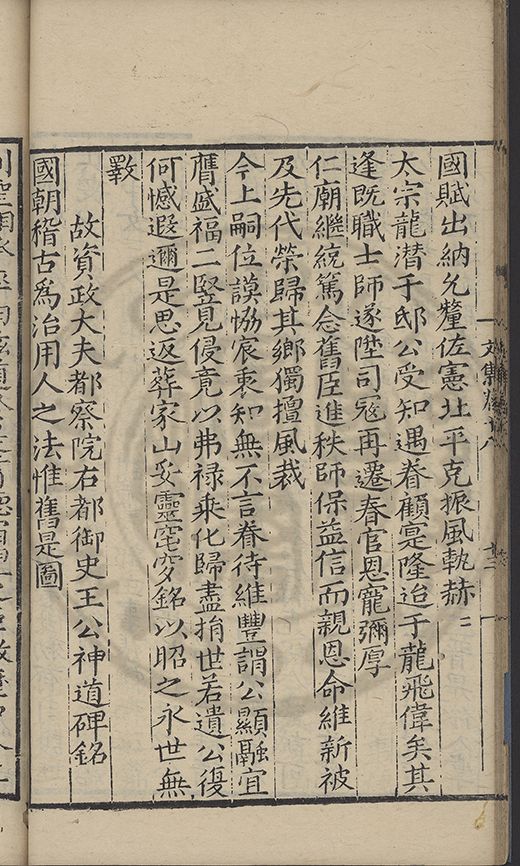 國賦出納允釐佐憲北平克振風軌赫二
太宗龍潛于邸公受知遇眷顧寔隆迨于龍飛偉矣其
逢既職士師遂陞司寇再遷春官恩寵彌厚
仁廟繼統篤念舊臣進秩師保益信而親恩命維新被
及先代榮歸其鄉獨擅風裁
今上嗣位謨恊宸衷知無不言眷待維豐謂公顯融宜
膺盛福二竪竟侵竟以弗祿乘化歸盡捐世若遺公復
何憾遐邇是思返葬家山妥靈窀穸銘以昭之永世無
斁
故資政大夫都察院右都御史王公神道碑銘
國朝稽古爲治用人之法惟舊是圖
文集